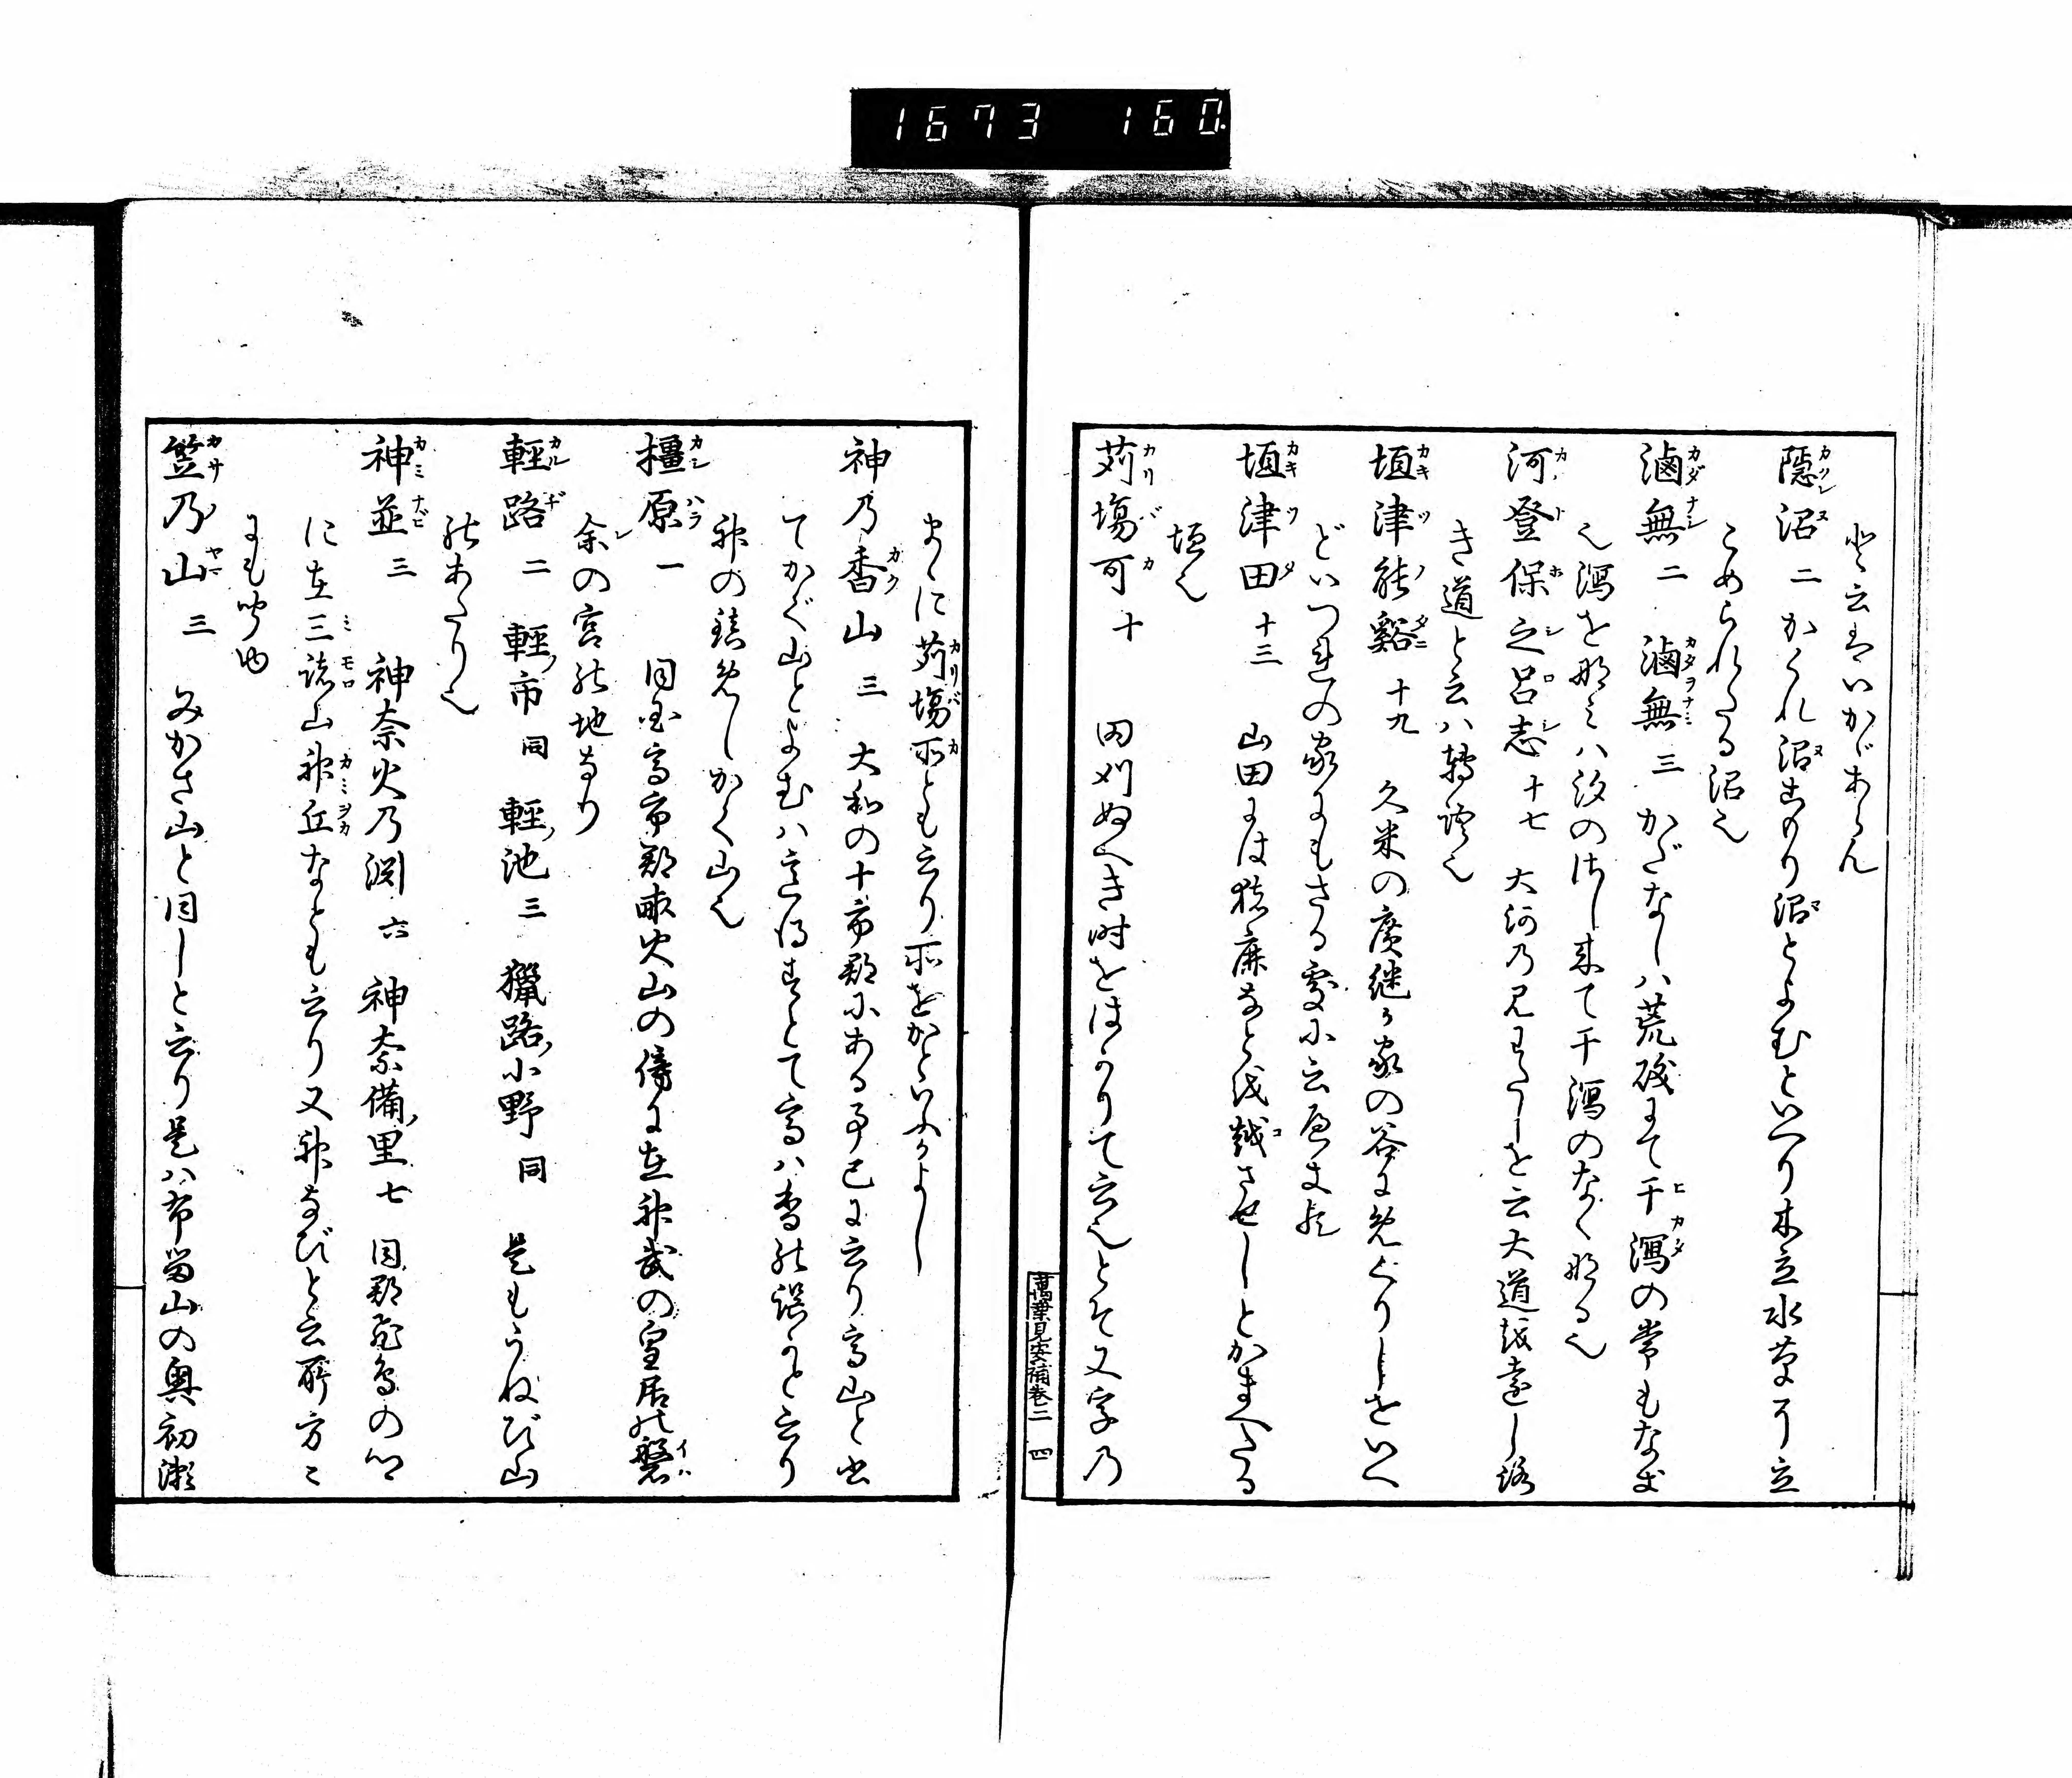 1673 160.
と云はいかゞあらん
隠沼 二 かくれ沼こもり沼とよむといへり木立水草より立
こめられたる沼也
滷無 二 滷無 三 かだなしハ荒磯まて干瀉の常もなき
也瀉を那みハ汐のさし来て干瀉のなく那る也
河登保之呂志 十七 大河乃見わたしを云大道越遠し路
き道と云ハ轉語也
垣津能谿 十九 久米の廣継か家の谷まめくりしをいへ
どいつれの家にもさる處に云へき也
垣津田 十三 山田には猪鹿なと越させしとかまへたる
垣也
苅塲可 十 田刈ぬへき時をはかりて云也とそ又字乃
萬葉見安補巻二 四
まゝに苅塲所とも云り所をかといふかよし
神乃香山 三 大和の十市郡にある事已に云り高山と書
てかぐ山とよむハ意得すとて高ハ香の誤かと云り
神の鎮めしかく山也
橿原 一 同国高市郡畝火山の傍に在神武の皇居の磐
余の宮の地なり
輕路 二 輕市 同 輕池 三 獵路小野 同 是もうねび山
のあたり也
神並 三 神奈火乃渕 六 神奈備里 七 同郡飛鳥の内
に在三諸山神丘なとも云り又神なびと云所方々
にも聞ゆ
笠乃山 三 みかさ山と同しと云り是ハ布留山の奥初瀬